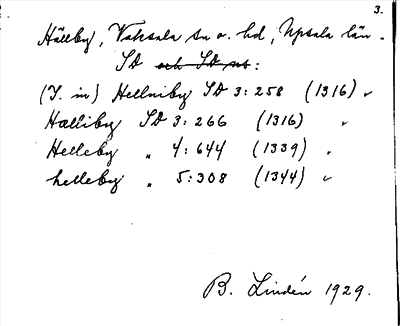 3.
Hällby, Vaksala sn o. hd, Upsala län.
SD och SD ns:
(I. in) Hellniby SD 3:258 (1316) ✓
Hælliby SD 3:266 (1316) "
Helleby " 4:644 (1339) "
helleby " 5:308 (1344) ✓
B. Lindén 1929.